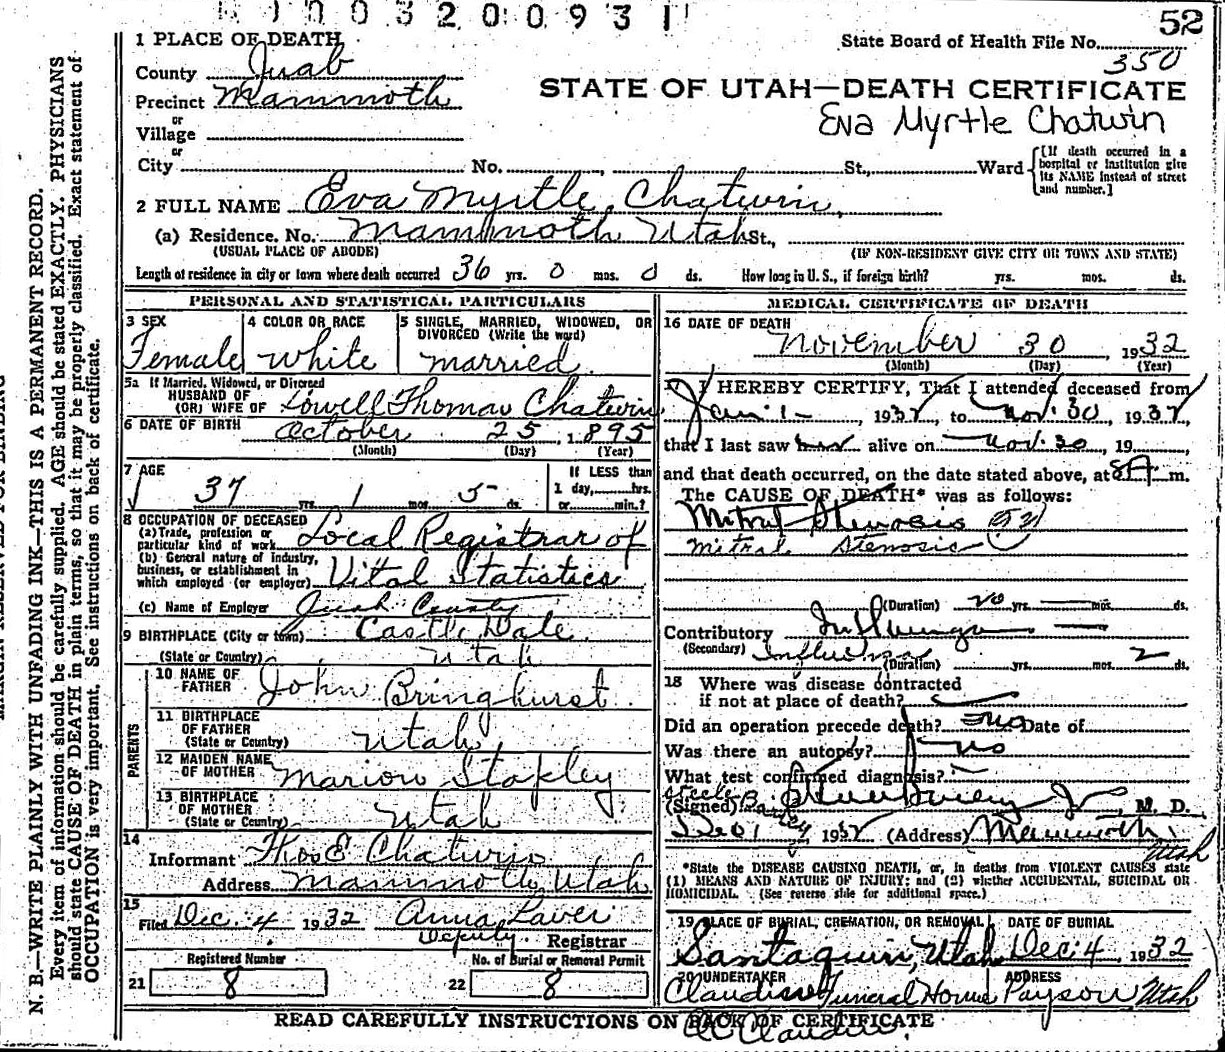 52
1 PLACE OF DEATH
State Board of Health File No. 350
County Juab
STATE OF UTAH—DEATH CERTIFICATE
Precinct Mammoth
Eva Myrtle Chatwin
or
Village
or
City No. St., Ward
[If death occurred in a hospital or institution give its NAME instead of street and number.]
2 FULL NAME Eva Myrtle Chatwin
(a) Residence. No. Mammoth Utah St.,
(USUAL PLACE OF ABODE) (IF NON-RESIDENT GIVE CITY OR TOWN AND STATE)
Length of residence in city or town where death occurred 36 yrs. 0 mos. 0 ds. How long in U. S., if foreign birth? yrs. mos. ds.
PERSONAL AND STATISTICAL PARTICULARS
3 SEX
Female
4 COLOR OR RACE
White
5 SINGLE, MARRIED, WIDOWED, OR DIVORCED (Write the word)
married
5a If Married, Widowed, or Divorced
HUSBAND OF
(OR) WIFE OF Lowell Thomas Chatwin
6 DATE OF BIRTH October 25, 1895
(Month) (Day) (Year)
7 AGE
37 yrs. 1 mos. 5 ds.
If LESS than
1 day, hrs.
or min.?
8 OCCUPATION OF DECEASED
(a) Trade, profession or
particular kind of work Local Registrar of
(b) General nature of industry,
business, or establishment in
which employed (or employer) Vital Statistics
(c) Name of Employer Juab County
9 BIRTHPLACE (City or town) Castle Dale
(State or Country) Utah
PARENTS
10 NAME OF
FATHER John Bringhurst
11 BIRTHPLACE
OF FATHER
(State or Country) Utah
12 MAIDEN NAME
OF MOTHER Marion Stapley
13 BIRTHPLACE
OF MOTHER
(State or Country) Utah
14
Informant Thos E Chatwin
Address Mammoth, Utah
15
Filed Dec. 4 1932 Anna Laver
Deputy Registrar
Registered Number No. of Burial or Removal Permit
21 8 22 8
MEDICAL CERTIFICATE OF DEATH
16 DATE OF DEATH
November 30, 1932
(Month) (Day) (Year)
17 I HEREBY CERTIFY, That I attended deceased from
Jan 1 - , 1932, to Nov. 30, 1932
that I last saw her alive on Nov. 30, 19
and that death occurred, on the date stated above, at 8A m.
The CAUSE OF DEATH* was as follows:
Mitral Stenosis
Mitral Stenosis
(Duration) 20 yrs. mos. ds.
Contributory Influenza
(Secondary) Influenza
(Duration) yrs. mos. 2 ds.
18 Where was disease contracted
if not at place of death?
Did an operation precede death? no Date of
Was there an autopsy? no
What test confirmed diagnosis?
Steele
(Signed) M. D.
Dec 1932 (Address) Mammoth, Utah
*State the DISEASE CAUSING DEATH, or, in deaths from VIOLENT CAUSES state
(1) MEANS AND NATURE OF INJURY; and (2) whether ACCIDENTAL, SUICIDAL OR
HOMICIDAL. (See reverse side for additional space.)
19 PLACE OF BURIAL, CREMATION, OR REMOVAL DATE OF BURIAL
Santaquin, Utah Dec. 4 1932
20 UNDERTAKER ADDRESS
Claudin Funeral Home Payson Utah
READ CAREFULLY INSTRUCTIONS ON BACK OF CERTIFICATE
N. B.—WRITE PLAINLY WITH UNFADING INK—THIS IS A PERMANENT RECORD.
Every item of information should be carefully supplied. AGE should be stated EXACTLY. PHYSICIANS
should state CAUSE OF DEATH in plain terms, so that it may be properly classified. Exact statement of
OCCUPATION is very important. See instructions on back of certificate.